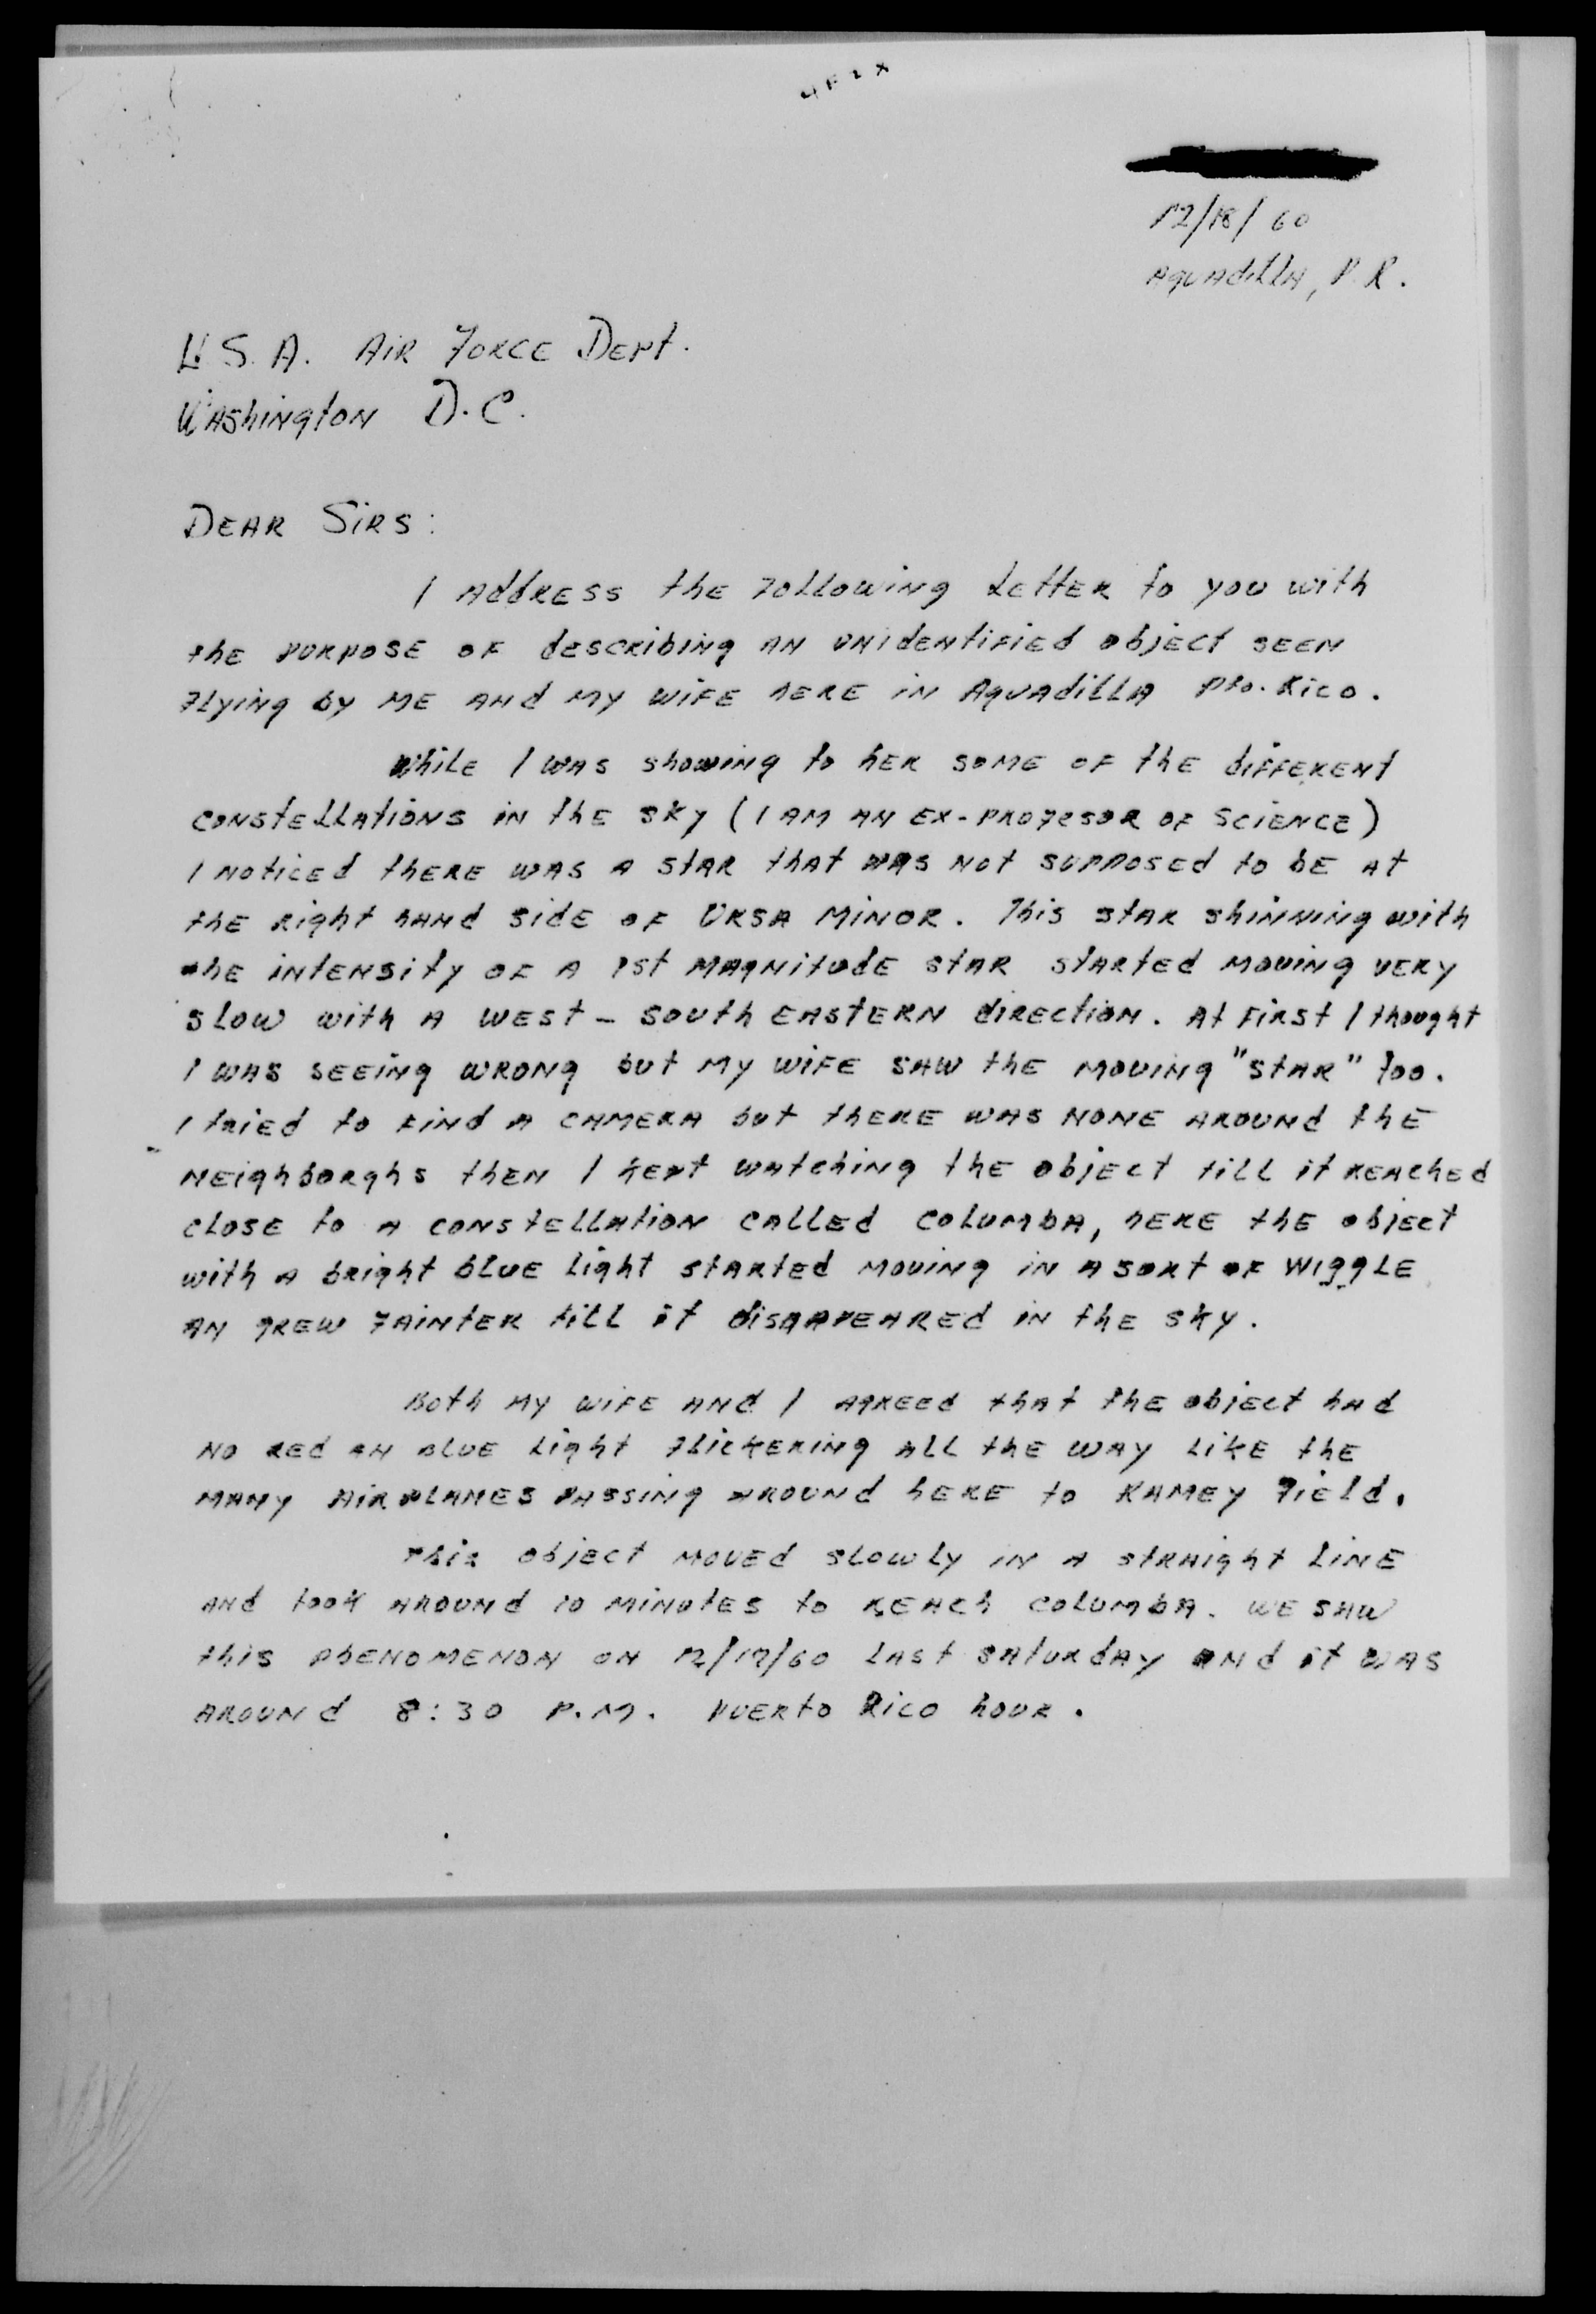 12/18/60
Aguadilla, P.R.
U.S.A. Air Force Dept.
Washington D.C.
Dear Sirs:
I address the following letter to you with
the purpose of describing an unidentified object seen
flying by me and my wife here in Aguadilla Pto. Rico.
While I was showing to her some of the different
constellations in the sky (I am an ex-profesor of science)
I noticed there was a star that was not supposed to be at
the right hand side of Ursa Minor. This star shinning with
the intensity of a 1st magnitude star started moving very
slow with a west - south eastern direction. At first I thought
I was seeing wrong but my wife saw the moving "star" too.
I tried to find a camera but there was none around the
neighborghs then I kept watching the object till it reached
close to a constellation called Columba, here the object
with a bright blue light started moving in a sort of wiggle
an grew fainter till it disappeared in the sky.
Both my wife and I agreed that the object had
no red an blue light flickering all the way like the
many airplanes passing around here to Ramey Field.
This object moved slowly in a straight line
and took around 10 minutes to reach Columba. We saw
this phenomenon on 12/17/60 last Saturday and it was
around 8:30 P.M. Puerto Rico hour.